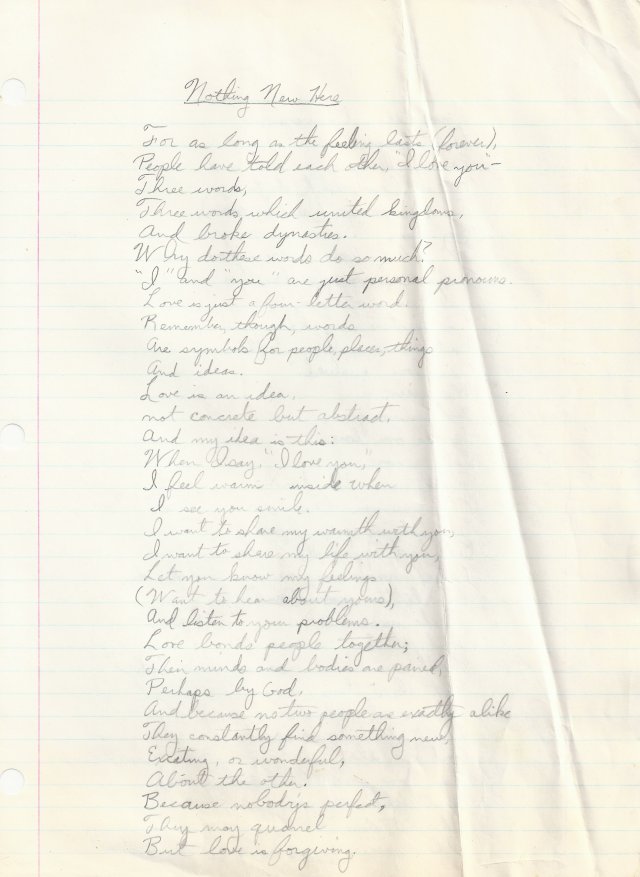 Nothing New Here
For as long as the feeling lasts (forever),
People have told each other, "I love you" –
Three words,
Three words which united kingdoms,
And broke dynasties.
Why do these words do so much?
"I" and "you" are just personal pronouns.
Love is just a four-letter word.
Remember, though, words
Are symbols for people, places, things
And ideas.
Love is an idea,
not concrete but abstract,
And my idea is this:
When I say, "I love you,"
I feel warm inside when
I see you smile.
I want to share my warmth with you,
I want to share my life with you,
Let you know my feelings
(Want to hear about yours),
And listen to your problems.
Love bonds people together;
Their minds and bodies are paired,
Perhaps by God,
And because no two people are exactly alike
They constantly find something new,
Exciting, or wonderful,
About the other.
Because nobody's perfect,
They may quarrel
But love is forgiving.